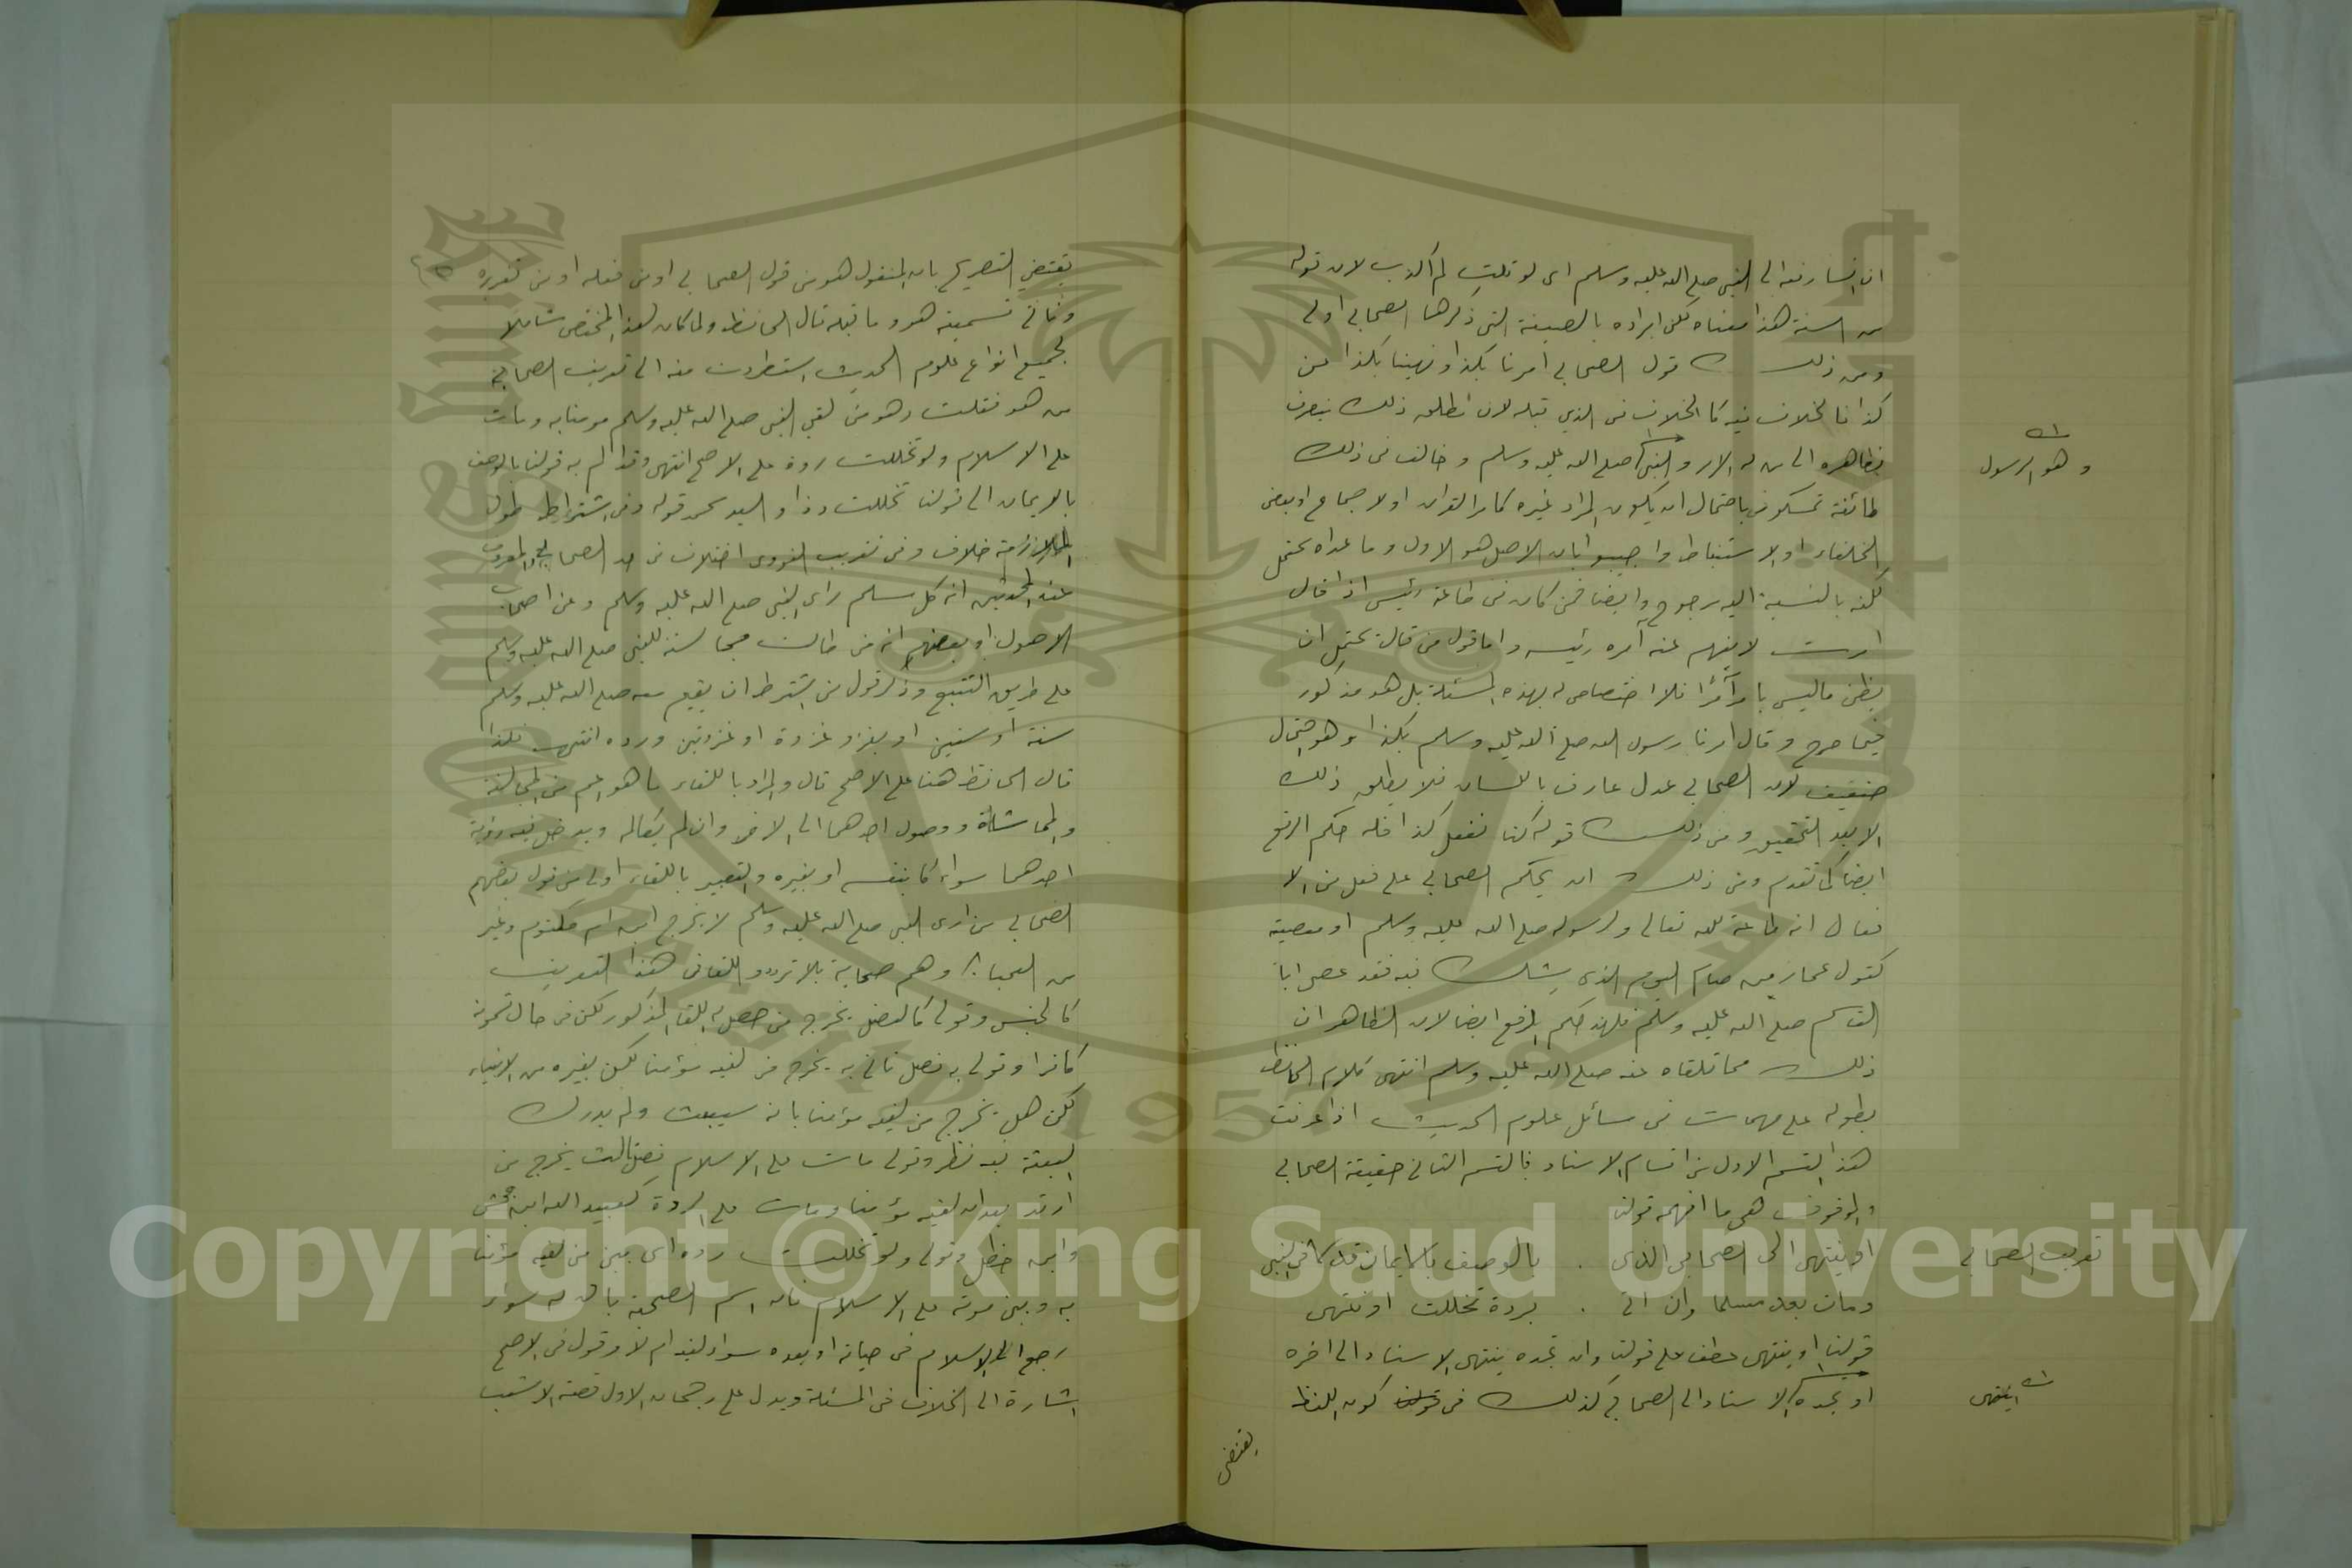 ان انسا رفعه الى النبي صلى الله عليه وسلم اى لو قلت لم اكذب لان قوله
من السنة هذا معناه لكن ايراده بالصيغة التي ذكرها الصحابي اولى
ومن ذلك قول الصحابي امرنا بكذا او نهينا بكذا عن
كذا فالخلاف فيه كالخلاف في الذي قبله لان مطلق ذلك ينصرف
بظاهره الى من له الامر والنهي صلى الله عليه وسلم وخالف في ذلك
وهو الرسول
طائفة تمسكوا باحتمال ان يكون المراد غيره كامر القران او الاجماع او بعض
الخلفاء او الاستنباط واجيبوا بان الاصل هو الاول وما عداه محتمل
لكنه بالنسبة اليه مرجوح وايضا فمن كان في طاعة رئيس اذا قال
امرت لا يفهم عنه آمره رئيسه واما قول من قال يحتمل ان
يظن ماليس بامر آمرًا فلا اختصاص له بهذه المسئلة بل هو مذكور
فيما صرح وقال امرنا رسول الله صلى الله عليه وسلم بكذا وهو احتمال
ضعيف لان الصحابي عدل عارف باللسان فلا يطلق ذلك
الا بعد التحقيق ومن ذلك قوله كنا نفعل كذا فله حكم الرفع
ايضا كما تقدم ومن ذلك ان يحكم الصحابي على فعل من الا
فعال انه طاعة لله تعالى ولرسوله صلى الله عليه وسلم او معصية
كقول عمار من صام اليوم الذي يشك فيه فقد عصى ابا
القاسم صلى الله عليه وسلم فلهذا حكم الرفع ايضا لان الظاهر ان
ذلك مما تلقاه عنه صلى الله عليه وسلم انتهى كلام الحافظ
بطوله على مهمات في مسائل علوم الحديث اذا عرفت
هذا القسم الاول من اقسام الاسناد فالقسم الثاني حقيقة الصحابي
والموقوف هي ما افهمه قولنا
تعريف الصحابي
او ينتهى الى الصحابي الذى . بالوصف بالايمان قد لاقى النبي
ومات بعد مسلما وان اتى . بردة تخللت او ينتهى
قولنا او ينتهى عطف على قولنا وان تجده ينتهى الاسناد الى اخره
او تجده الاسناد الى الصحابي كذلك في كون اللفظ
ينتهى
يقتضي
يقتضي التصريح بان المنقول هو من قول الصحابي او من فعله او من تقريره
قال الحافظ ولما كان هذا المختصر شاملا
لجميع انواع علوم الحديث استطردت منه الى تعريف الصحابي
من هو فقلت وهو من لقي النبي صلى الله عليه وسلم مومنا به ومات
على الاسلام ولو تخللت ردة على الاصح انتهى وقد الم به قولنا بالوصف
بالايمان الى قولنا تخللت قوله وفي اشتراط طول
الملازمة خلاف وفي تقريب النووي اختلاف في حد الصحابي المعروف
عند المحدثين انه كل مسلم راى النبي صلى الله عليه وسلم وعن اصحاب
الاصول او بعضهم انه من طالت مجالسته للنبي صلى الله عليه وسلم
على طريق التتبع وذكر قول من اشترط ان يقيم معه صلى الله عليه وسلم
سنة او سنتين او يغزو غزوة او غزوتين ورده انتهى فلذا
قال الحافظ هنا على الاصح قال والمراد باللقاء ما هو اعم من المجالسة
والمماشاة ووصول احدهما الى الاخر وان لم يكالمه ويدخل فيه رؤية
احدهما سواء كا بنفسه او بغيره والتعبير باللقاء اولى من قول بعضهم
الصحابي من اراى النبي صلى الله عليه وسلم لا يخرج ابن ام مكتوم وغير
من العميان وهم صحابة بلا تردد واللقا في هذا التعريف
كالجنس وقولي كالفصل يخرج من حصل له اللقا المذكور لكن في حال كونه
كافرا وقولي به فصل ثاني به يخرج من لقيه مؤمنا لكن بغيره من الانبياء
لكن هل يخرج من لقيه مؤمنا بانه سيبعث ولم يدرك
البعثة فيه نظر وقولي مات على الاسلام فصل ثالث يخرج من
ارتد بعد ان لقيه مؤمنا ومات على الردة كعبيد الله ابن جحش
وابن خطل وقولي ولو تخللت ردة اى بين من لقيه مؤمنا
به وبين موته على الاسلام فان اسم الصحبة باق له سواء
رجع الى الاسلام في حياته او بعده سواء لقيه ام لا وقول في الاصح
اشارة الى الخلاف في المسئلة ويدل على رجحان الاول قصة الاشعث
Copyright © King Saud University
1957